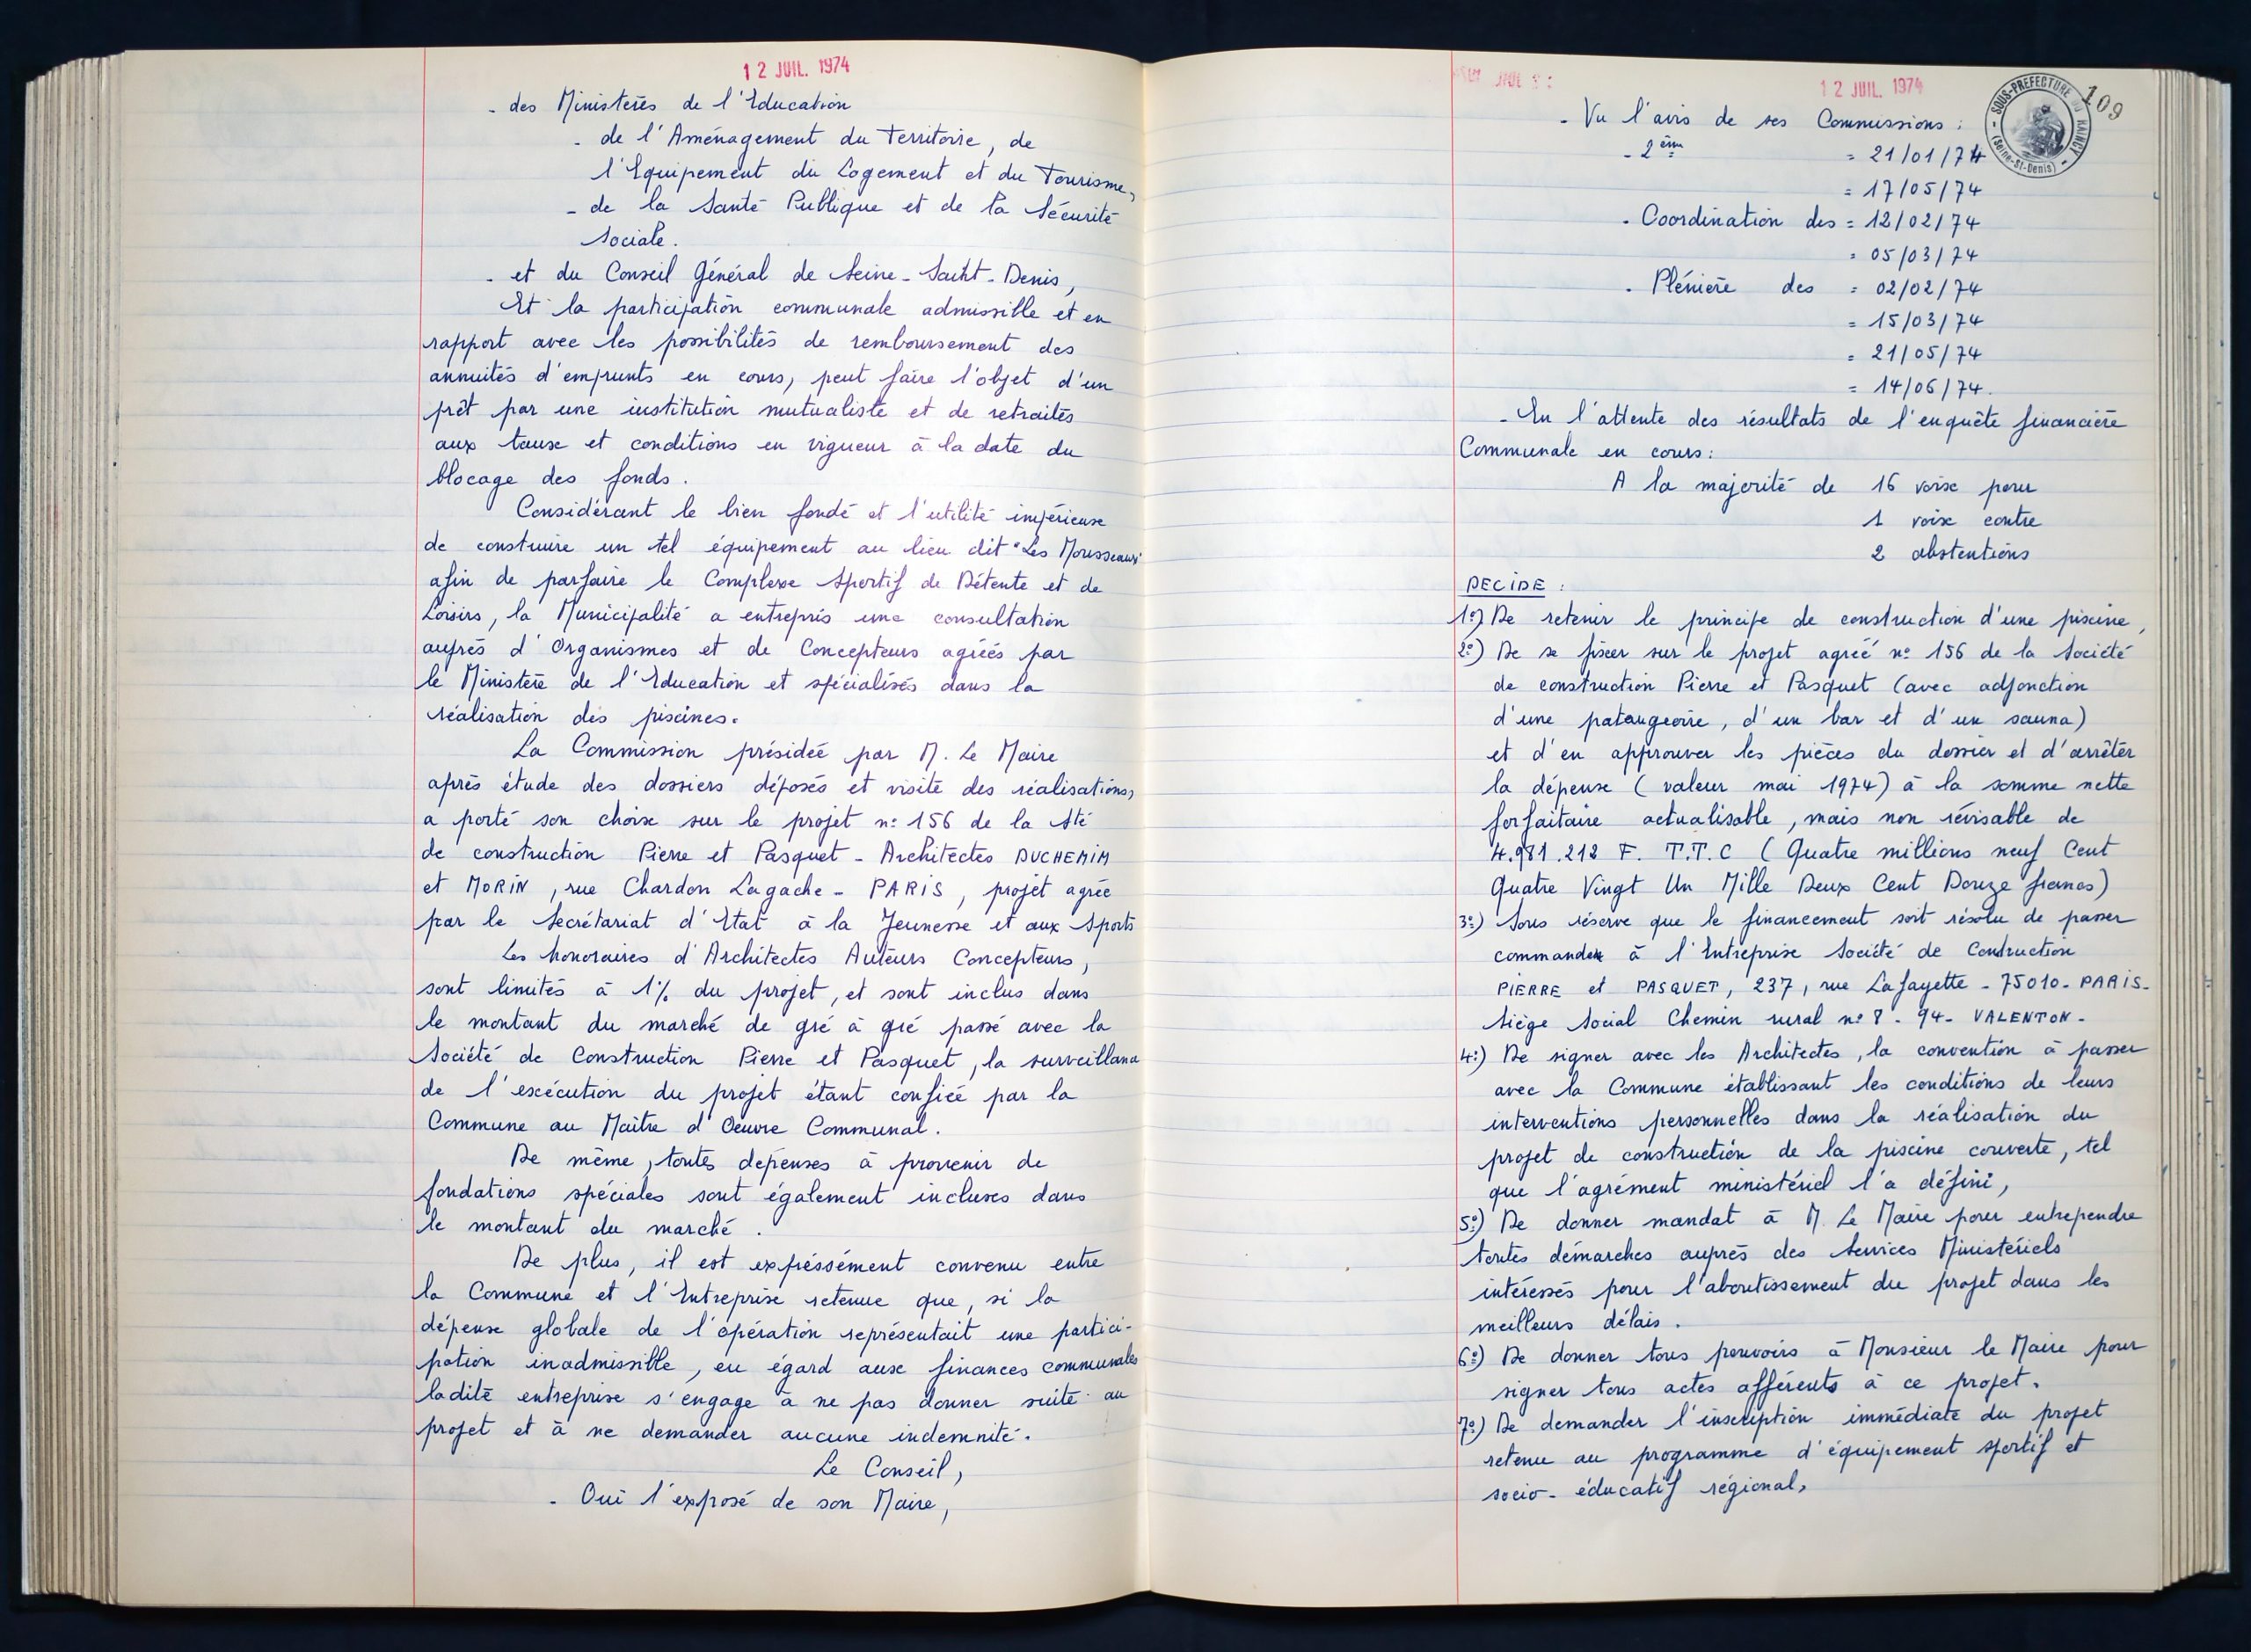 12 JUIL. 1974
- des Ministères de l'Education
- de l'Aménagement du Territoire, de
l'Equipement du Logement et du Tourisme,
- de la Santé Publique et de la Sécurité
Sociale.
- et du Conseil Général de Seine-Saint-Denis,
Et la participation communale admissible et en
rapport avec les possibilités de remboursement des
annuités d'emprunts en cours, peut faire l'objet d'un
prêt par une institution mutualiste et de retraités
aux taux et conditions en vigueur à la date du
blocage des fonds.
Considérant le bien fondé et l'utilité impérieuse
de construire un tel équipement au lieu dit "Les Mousseaux"
afin de parfaire le Complexe Sportif de Détente et de
Loisirs, la Municipalité a entrepris une consultation
auprès d'Organismes et de Concepteurs agréés par
le Ministère de l'Education et spécialisés dans la
réalisation des piscines.
La Commission présidée par M. Le Maire
après étude des dossiers déposés et visite des réalisations,
a porté son choix sur le projet n° 156 de la Sté
de construction Pierre et Pasquet - Architectes DUCHEMIM
et MORIN, rue Chardon Lagache - PARIS, projet agrée
par le Secrétariat d'Etat à la Jeunesse et aux Sports
Les honoraires d'Architectes Auteurs Concepteurs,
sont limités à 1% du projet, et sont inclus dans
le montant du marché de gré à gré passé avec la
Société de Construction Pierre et Pasquet, la surveillance
de l'exécution du projet étant confiée par la
Commune au Maître d'Oeuvre Communal.
De même, toutes dépenses à provenir de
fondations spéciales sont également incluses dans
le montant du marché.
De plus, il est expréssément convenu entre
la Commune et l'Entreprise retenue que, si la
dépense globale de l'opération représentait une partici-
pation inadmissible, eu égard aux finances communales
ladite entreprise s'engage à ne pas donner suite au
projet et à ne demander aucune indemnité.
Le Conseil,
- Ouï l'exposé de son Maire,
12 JUIL. 1974
SOUS-PREFECTURE DU RAINCY
(Seine-St-Denis)
109
- Vu l'avis de ses Commissions :
- 2ème = 21/01/74
= 17/05/74
- Coordination des = 12/02/74
= 05/03/74
- Plénière des = 02/02/74
= 15/03/74
= 21/05/74
= 14/06/74.
- En l'attente des résultats de l'enquête financière
Communale en cours :
A la majorité de 16 voix pour
1 voix contre
2 abstentions
DECIDE :
1°) De retenir le principe de construction d'une piscine,
2°) De se fixer sur le projet agréé n° 156 de la Société
de construction Pierre et Pasquet (avec adjonction
d'une pataugeoire, d'un bar et d'un sauna)
et d'en approuver les pièces du dossier et d'arrêter
la dépense (valeur mai 1974) à la somme nette
forfaitaire actualisable, mais non révisable de
4.981.212 F. T.T.C (Quatre millions neuf Cent
Quatre Vingt Un Mille Deux Cent Douze francs)
3°) Sous réserve que le financement soit résolu de passer
commande à l'Entreprise Société de Contruction
PIERRE et PASQUET, 237, rue Lafayette - 75010 - PARIS -
Siège Social Chemin rural n° 8 - 94 - VALENTON -
4°) De signer avec les Architectes, la convention à passer
avec la Commune établissant les conditions de leurs
interventions personnelles dans la réalisation du
projet de construction de la piscine couverte, tel
que l'agrément ministériel l'a défini,
5°) De donner mandat à M. Le Maire pour entrependre
toutes démarches auprès des Services Ministériels
intéressés pour l'aboutissement du projet dans les
meilleurs délais.
6°) De donner tous pouvoirs à Monsieur le Maire pour
signer tous actes afférents à ce projet.
7°) De demander l'inscription immédiate du projet
retenu au programme d'équipement sportif et
socio-éducatif régional,